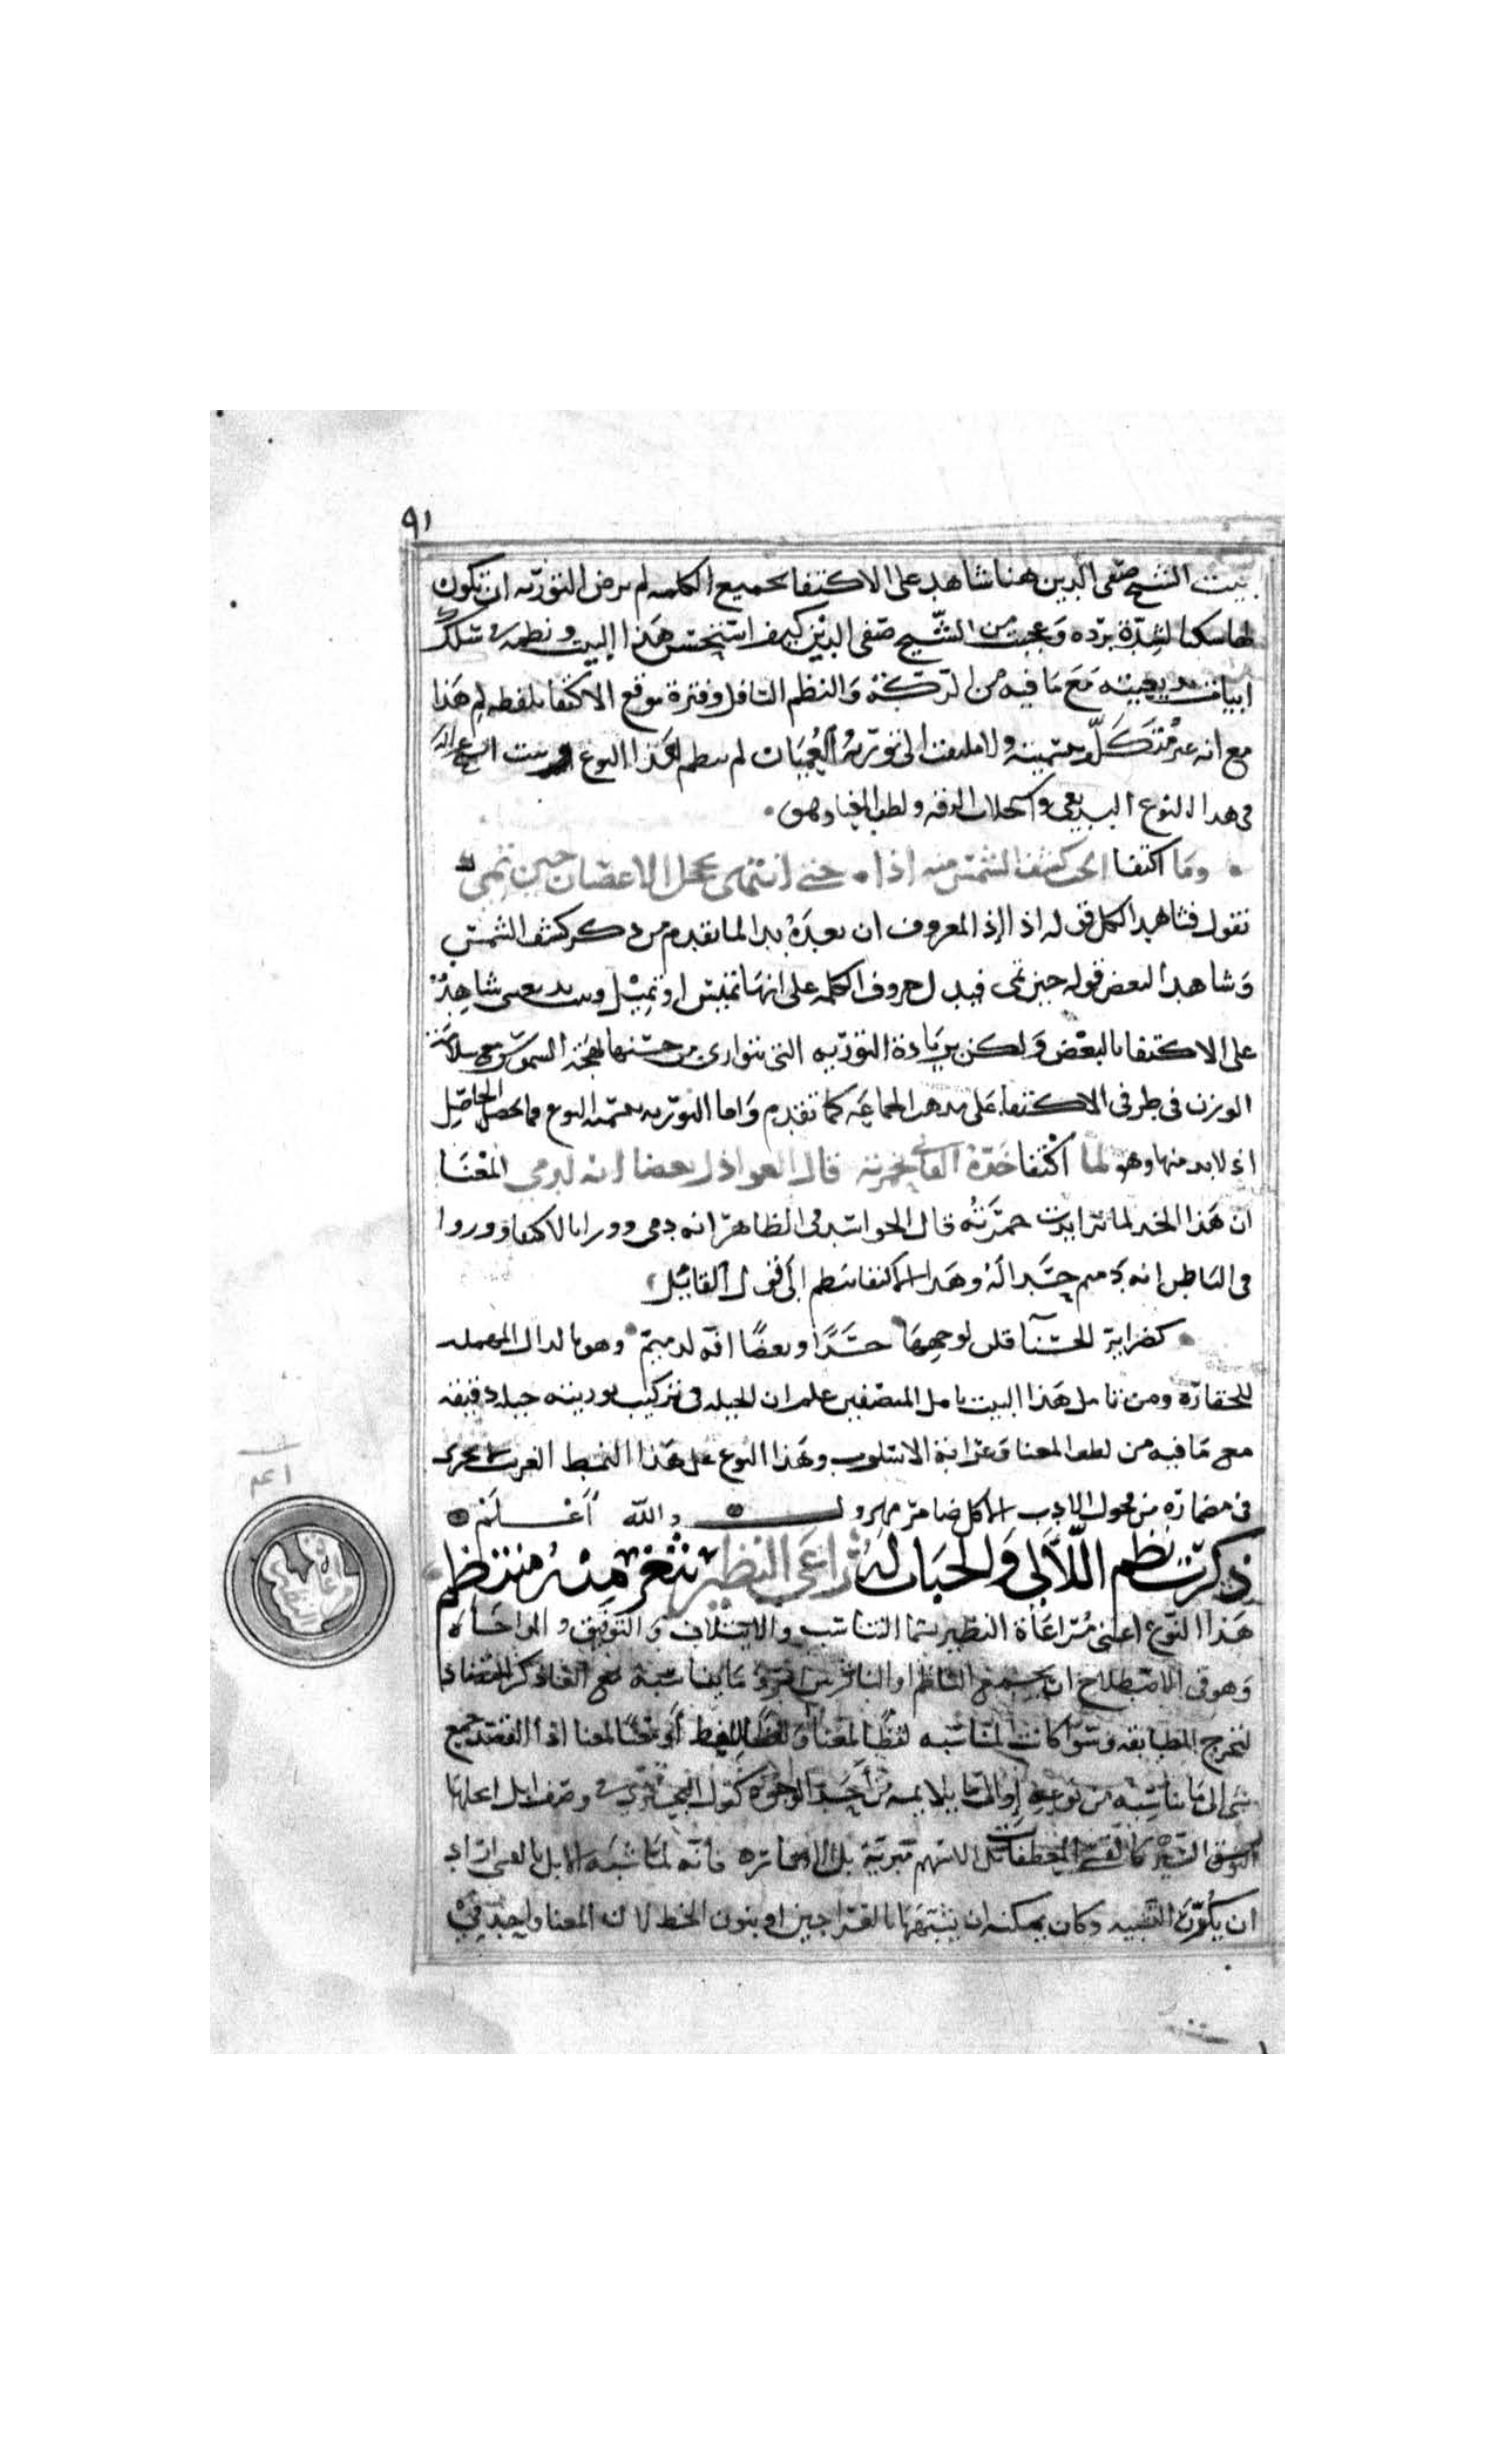 ٩١
بيت الشيخ صفي الدين هنا شاهد على الاكتفا بجميع الكلمه لم ترض التوريه ان تكون
لها سكنا لشدة برده وعجبت من الشيخ صفي الدين كيف استحسن هذا البيت ونظمه في سلك
ابيات بديعيته مع ما فيه من الركة والنظم السافل وفترة موقع الاكتفا بلفظه لم هذا
مع انه غير متكلف بتسميته ولا ملتفت الى تورية العميان لم ينظم هذا النوع وبيت الشيخ عز الدين
في هذا النوع البديعي واستجلاب الرقه ولطف المعنا وهو
وما اكتفا الحب كسف الشمس منه اذا حتى انتهى يخجل الاغصان حين تمي
نقول فشاهد الكل قوله اذا اذ المعروف ان بعده بدا لما تقدم من ذكر كسف الشمس
وشاهد البعض قوله حين تمي فيدل حروف الكلمه على انها تميس او تميل وبيت بديعيتي شاهده
على الاكتفا بالبعض ولكن بزيادة التوريه التي تتوارى من حسنها بهجة الشموس مع سلامة
الوزن في طرفي الاكتفا على مذهب الجماعه كما تقدم واما التوريه بتسمية النوع فما تحصل الحاصل
اذ لا بد منها وهو لما اكتفا خده القاني بحمرته قال العواذل بعضا انه لدمي المعنا
ان هذا الخد لما تزايدت حمرته قال الحواسد في الظاهر انه دمي وورا بالاكتفا وورد وا
في الباطن انه دميم حسدا له وهذا الاكتفا ينظم الى قول القايل
كضراير الحسنا قلن لوجهها حسدا وبعضا انه لدميم وهو بالدال المهمله
للحقارة ومن تامل هذا البيت تامل المنصفين علم ان الحيله في تركيب توريته حيله دقيقه
مع ما فيه من لطف المعنا وغرابة الاسلوب وهذا النوع على هذا النمط الغريب لا يجري
في مضماره من فحول الادب الا كل ضامر مهزول والله اعلم
ذكرت نظم اللآلي والحباب له راعى النظير بثغر منه منتظم
هذا النوع اعني مراعاة النظير يسما التناسب والايتلاف والتوفيق والمواخاه
وهو في الاصطلاح ان يجمع الناظم او الناثر بين امر وما يناسبه مع الغا ذكر التضاد
لتخرج المطابقه وسوا كانت المناسبه لفظا لمعنا ولفظا للفظ او معنا لمعنا اذ القصد جمع
شي الى ما يناسبه من نوعه او الى ما يلايمه من احد الوجوه كقول البحتري في وصف ابل انحلها
السير كالقسي المعطفات بل الاسهم مبرية بل الاوتار فانه لما شبه الابل بالقسي اراد
ان يكرر التشبيه وكان يمكنه ان يشبهها بالعراجين او بنون الخط لان المعنا واحد في